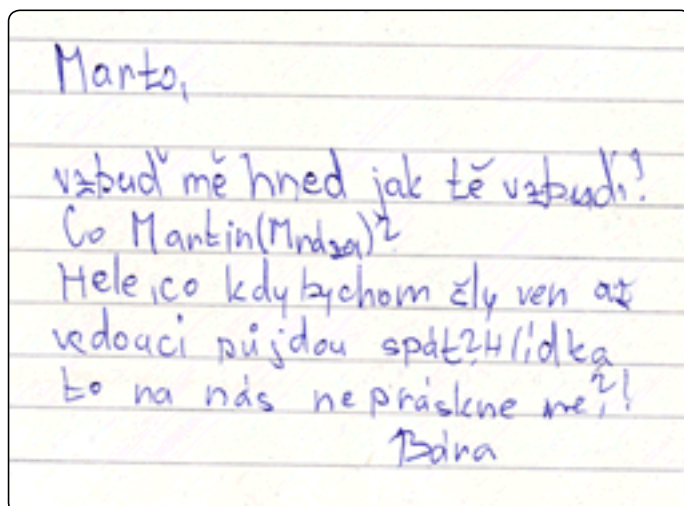 Marto,
vzbuď mě hned jak tě vzbudí!
Co Martin(Mrdza)?
Hele, co kdybychom čly ven až
vedoucí půjdou spát? Hlídka
to na nás nepráskne ne?!
Bára